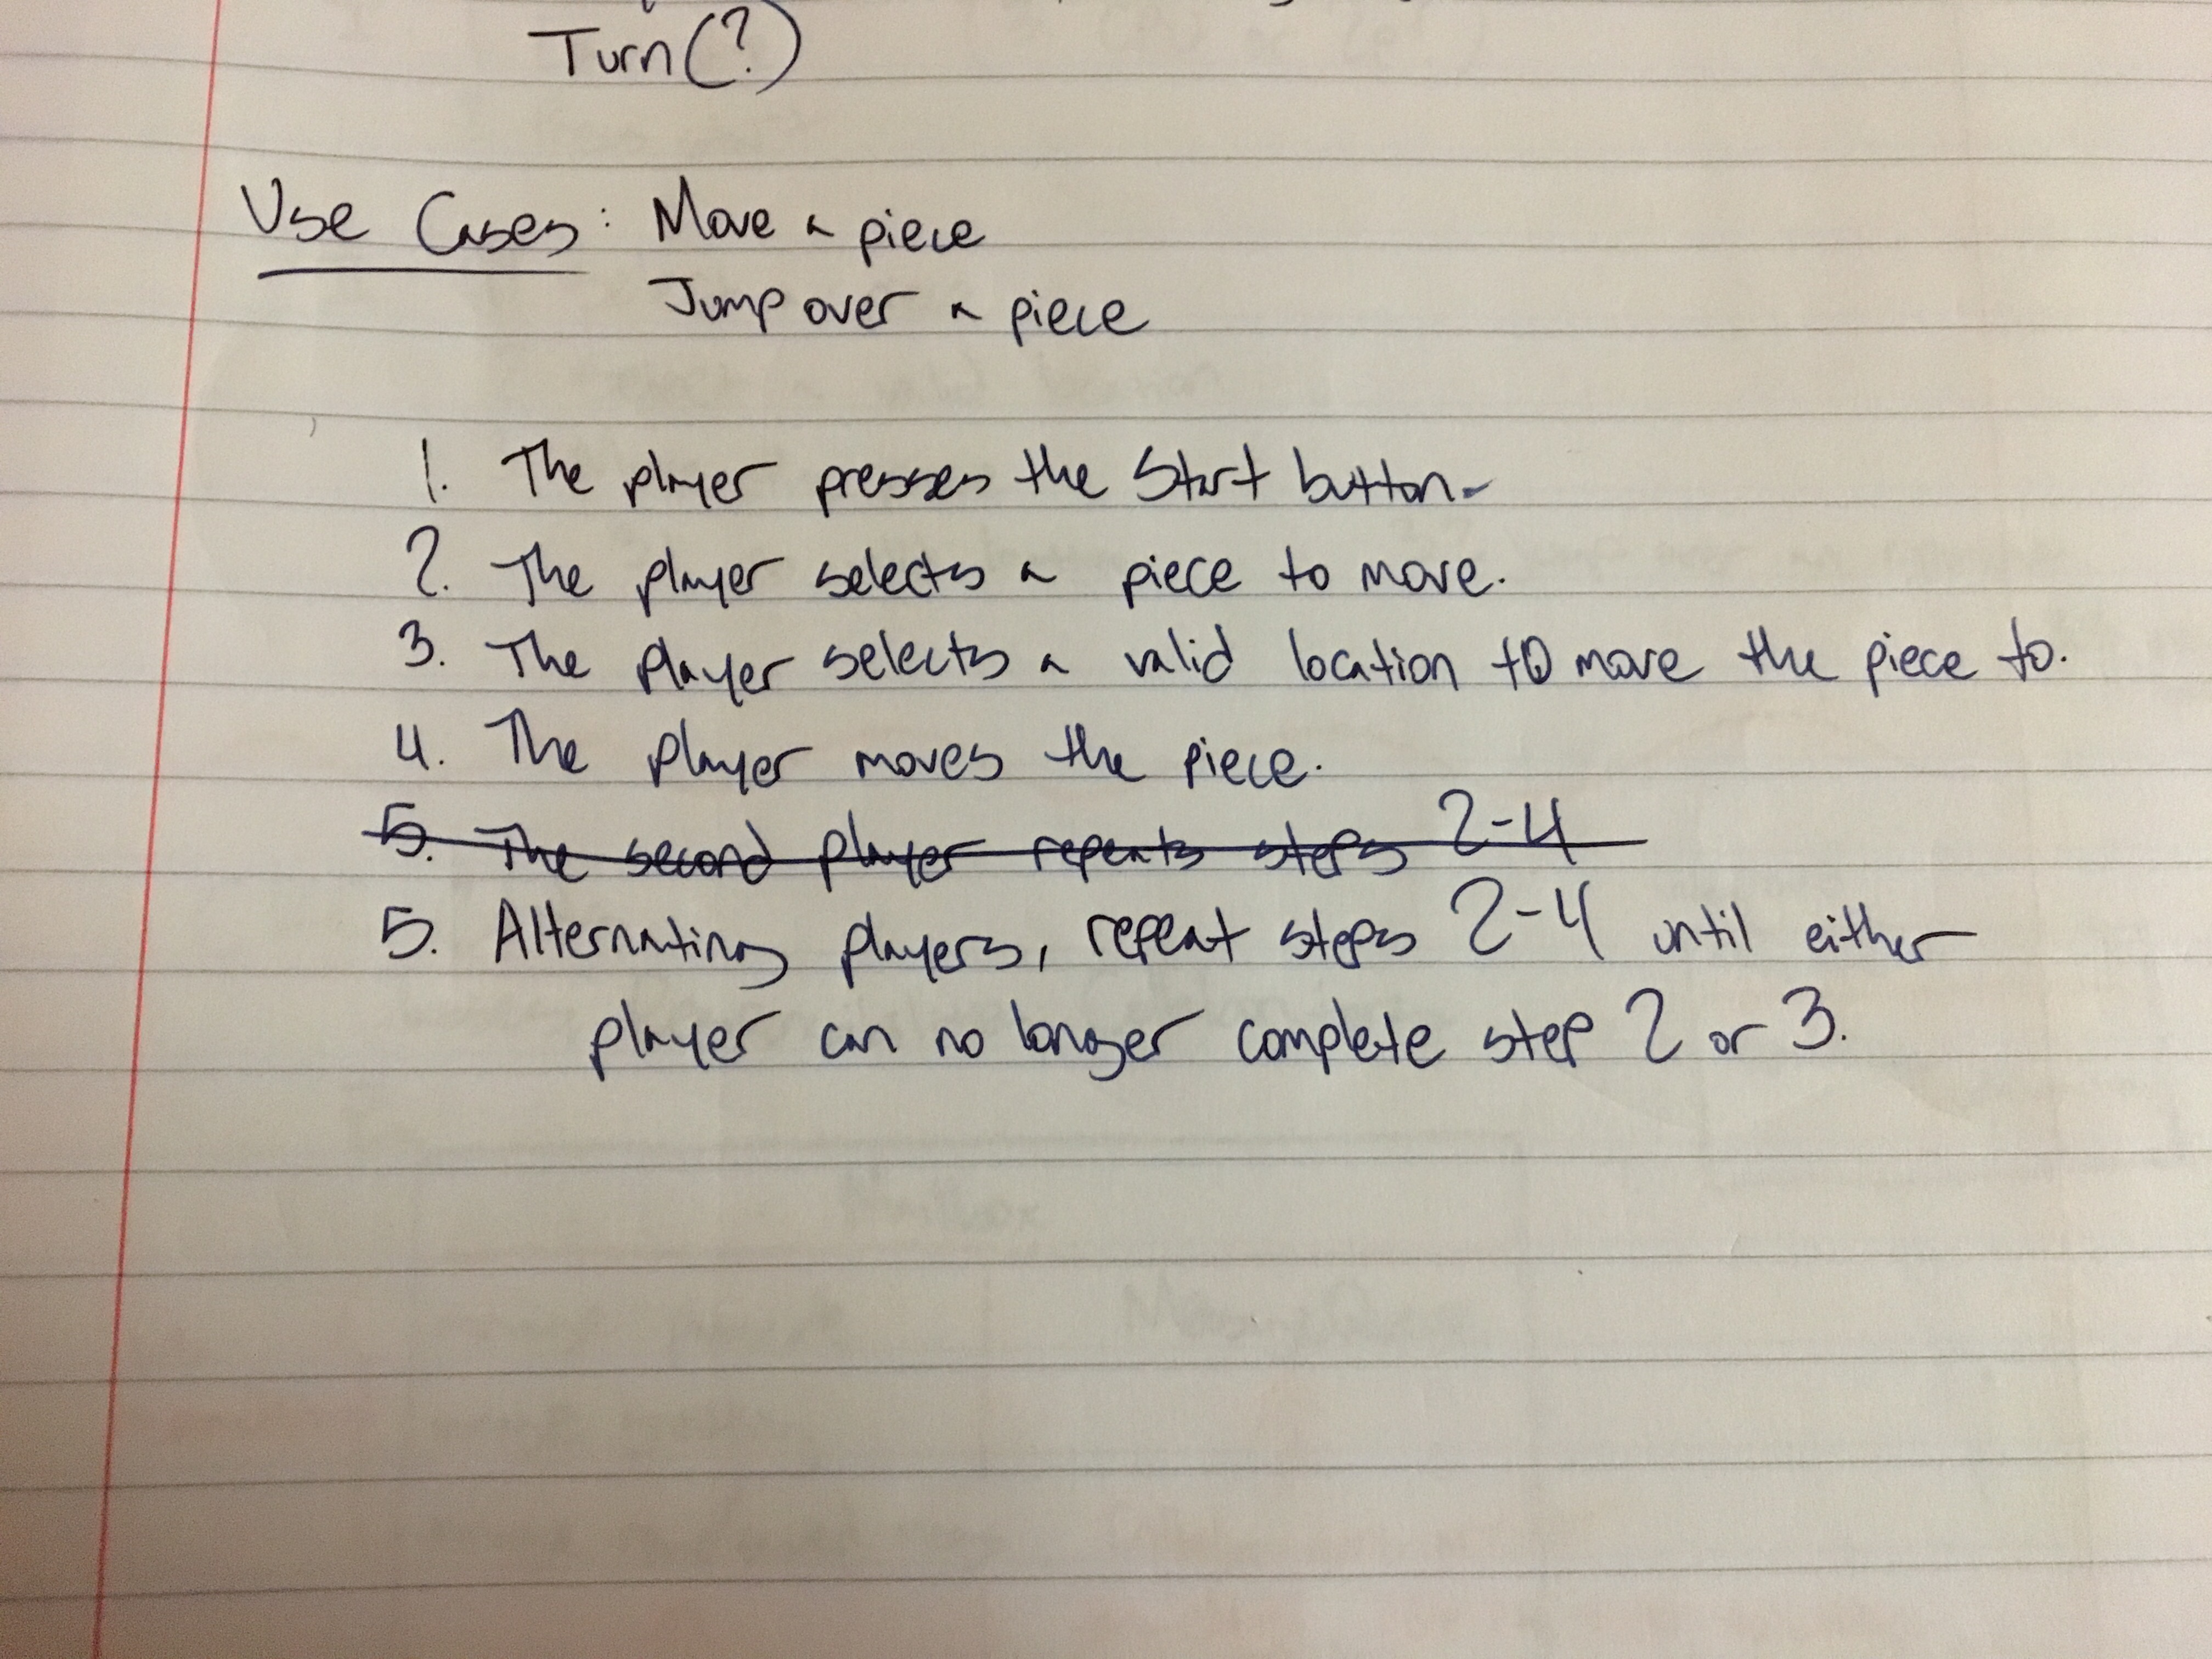 Turn(?)
Use Cases: Move a piece
Jump over a piece
1. The player presses the Start button.
2. The player selects a piece to move.
3. The player selects a valid location to move the piece to.
4. The player moves the piece.
5. The second player repeats steps 2-4
5. Alternating players, repeat steps 2-4 until either
player can no longer complete step 2 or 3.